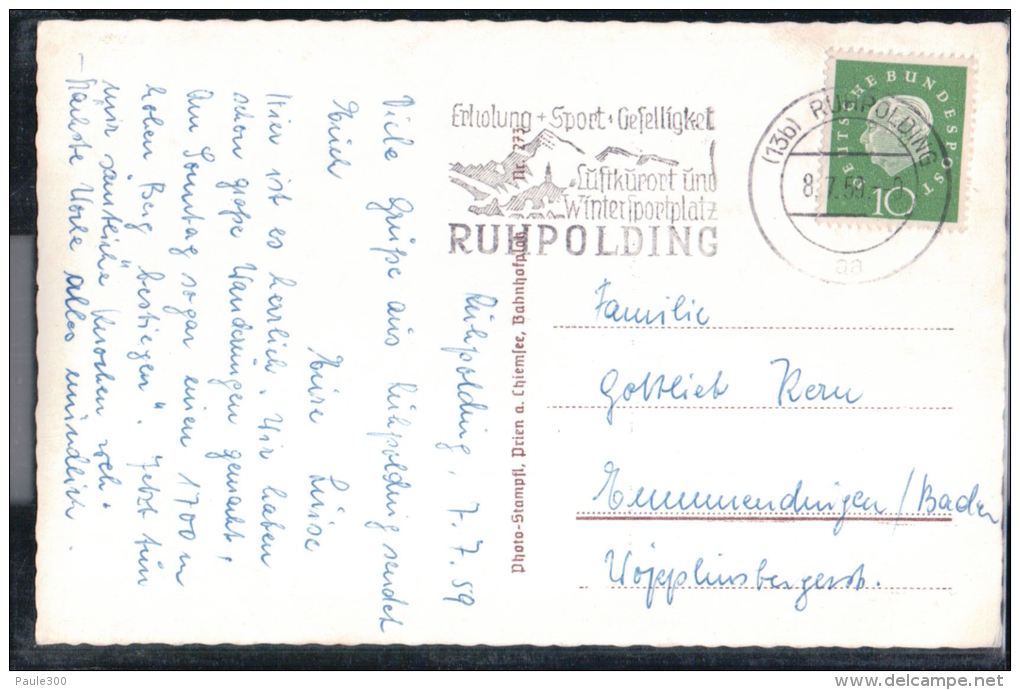 Erholung + Sport + Geselligkeit
Luftkurort und
Wintersportplatz
RUHPOLDING
(13b) RUHPOLDING
8.7.59
aa
DEUTSCHE BUNDESPOST
10
Photo-Stampfl, Prien a. Chiemsee, Bahnhofplatz Nr. 273
Ruhpolding, 7.7.59
Viele Grüße aus Ruhpolding sendet
Euch Eure Luise
Hier ist es herrlich. Wir haben
schon große Wanderungen gemacht,
am Sonntag sogar einen 1700 m
hohen Berg „bestiegen“. Jetzt tun
mir sämtliche Knochen weh.
– Nächste Woche alles mündlich.
Familie
Gottlieb Kern
Emmendingen / Baden
Paule300
delcampe.net